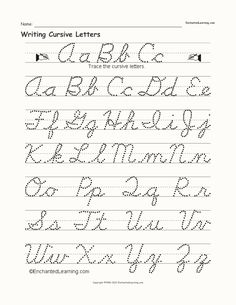 Name: EnchantedLearning.com
Writing Cursive Letters
Aa Bb Cc
Trace the cursive letters.
Aa Bb Cc Dd Ee
Ff Gg Hh Ii Jj
Kk Ll Mm Nn
Oo Pp Qq Rr
Ss Tt Uu Vv
Ww Xx Yy Zz
©EnchantedLearning.com